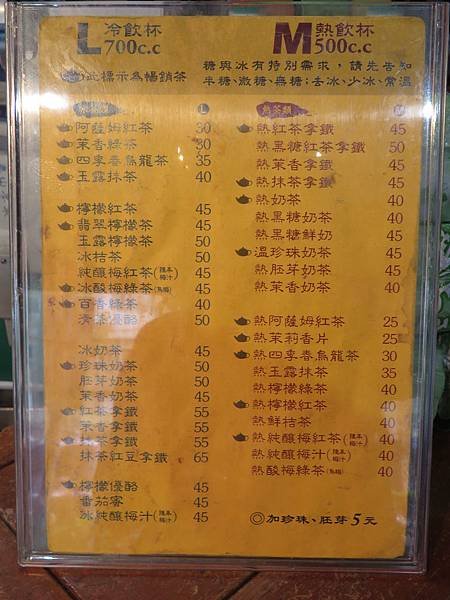 L 冷飲杯 700c.c
M 熱飲杯 500c.c
此標示為暢銷茶
糖與冰有特別需求，請先告知
半糖、微糖、無糖；去冰、少冰、常溫
L
阿薩姆紅茶 30
茉香綠茶 30
四季春烏龍茶 35
玉露抹茶 40
檸檬紅茶 45
翡翠檸檬茶 45
玉露檸檬茶 50
冰桔茶 50
純釀梅紅茶 45
冰酸梅綠茶 45
百香綠茶 40
清茶優酪 50
冰奶茶 45
珍珠奶茶 50
胚芽奶茶 50
茉香奶茶 45
紅茶拿鐵 55
茉香拿鐵 55
抹茶拿鐵 55
抹茶紅豆拿鐵 65
檸檬優酪 45
番茄蜜 45
冰純釀梅汁 45
M
熱紅茶拿鐵 45
熱黑糖紅茶拿鐵 50
熱茉香拿鐵 45
熱抹茶拿鐵 45
熱奶茶 40
熱黑糖奶茶 40
熱黑糖鮮奶 45
溫珍珠奶茶 45
熱胚芽奶茶 45
熱茉香奶茶 40
熱阿薩姆紅茶 25
熱茉莉香片 25
熱四季春烏龍茶 30
熱玉露抹茶 35
熱檸檬綠茶 40
熱檸檬紅茶 40
熱鮮桔茶 40
熱純釀梅紅茶 40
熱純釀梅汁 40
熱酸梅綠茶 40
◎加珍珠、胚芽5元